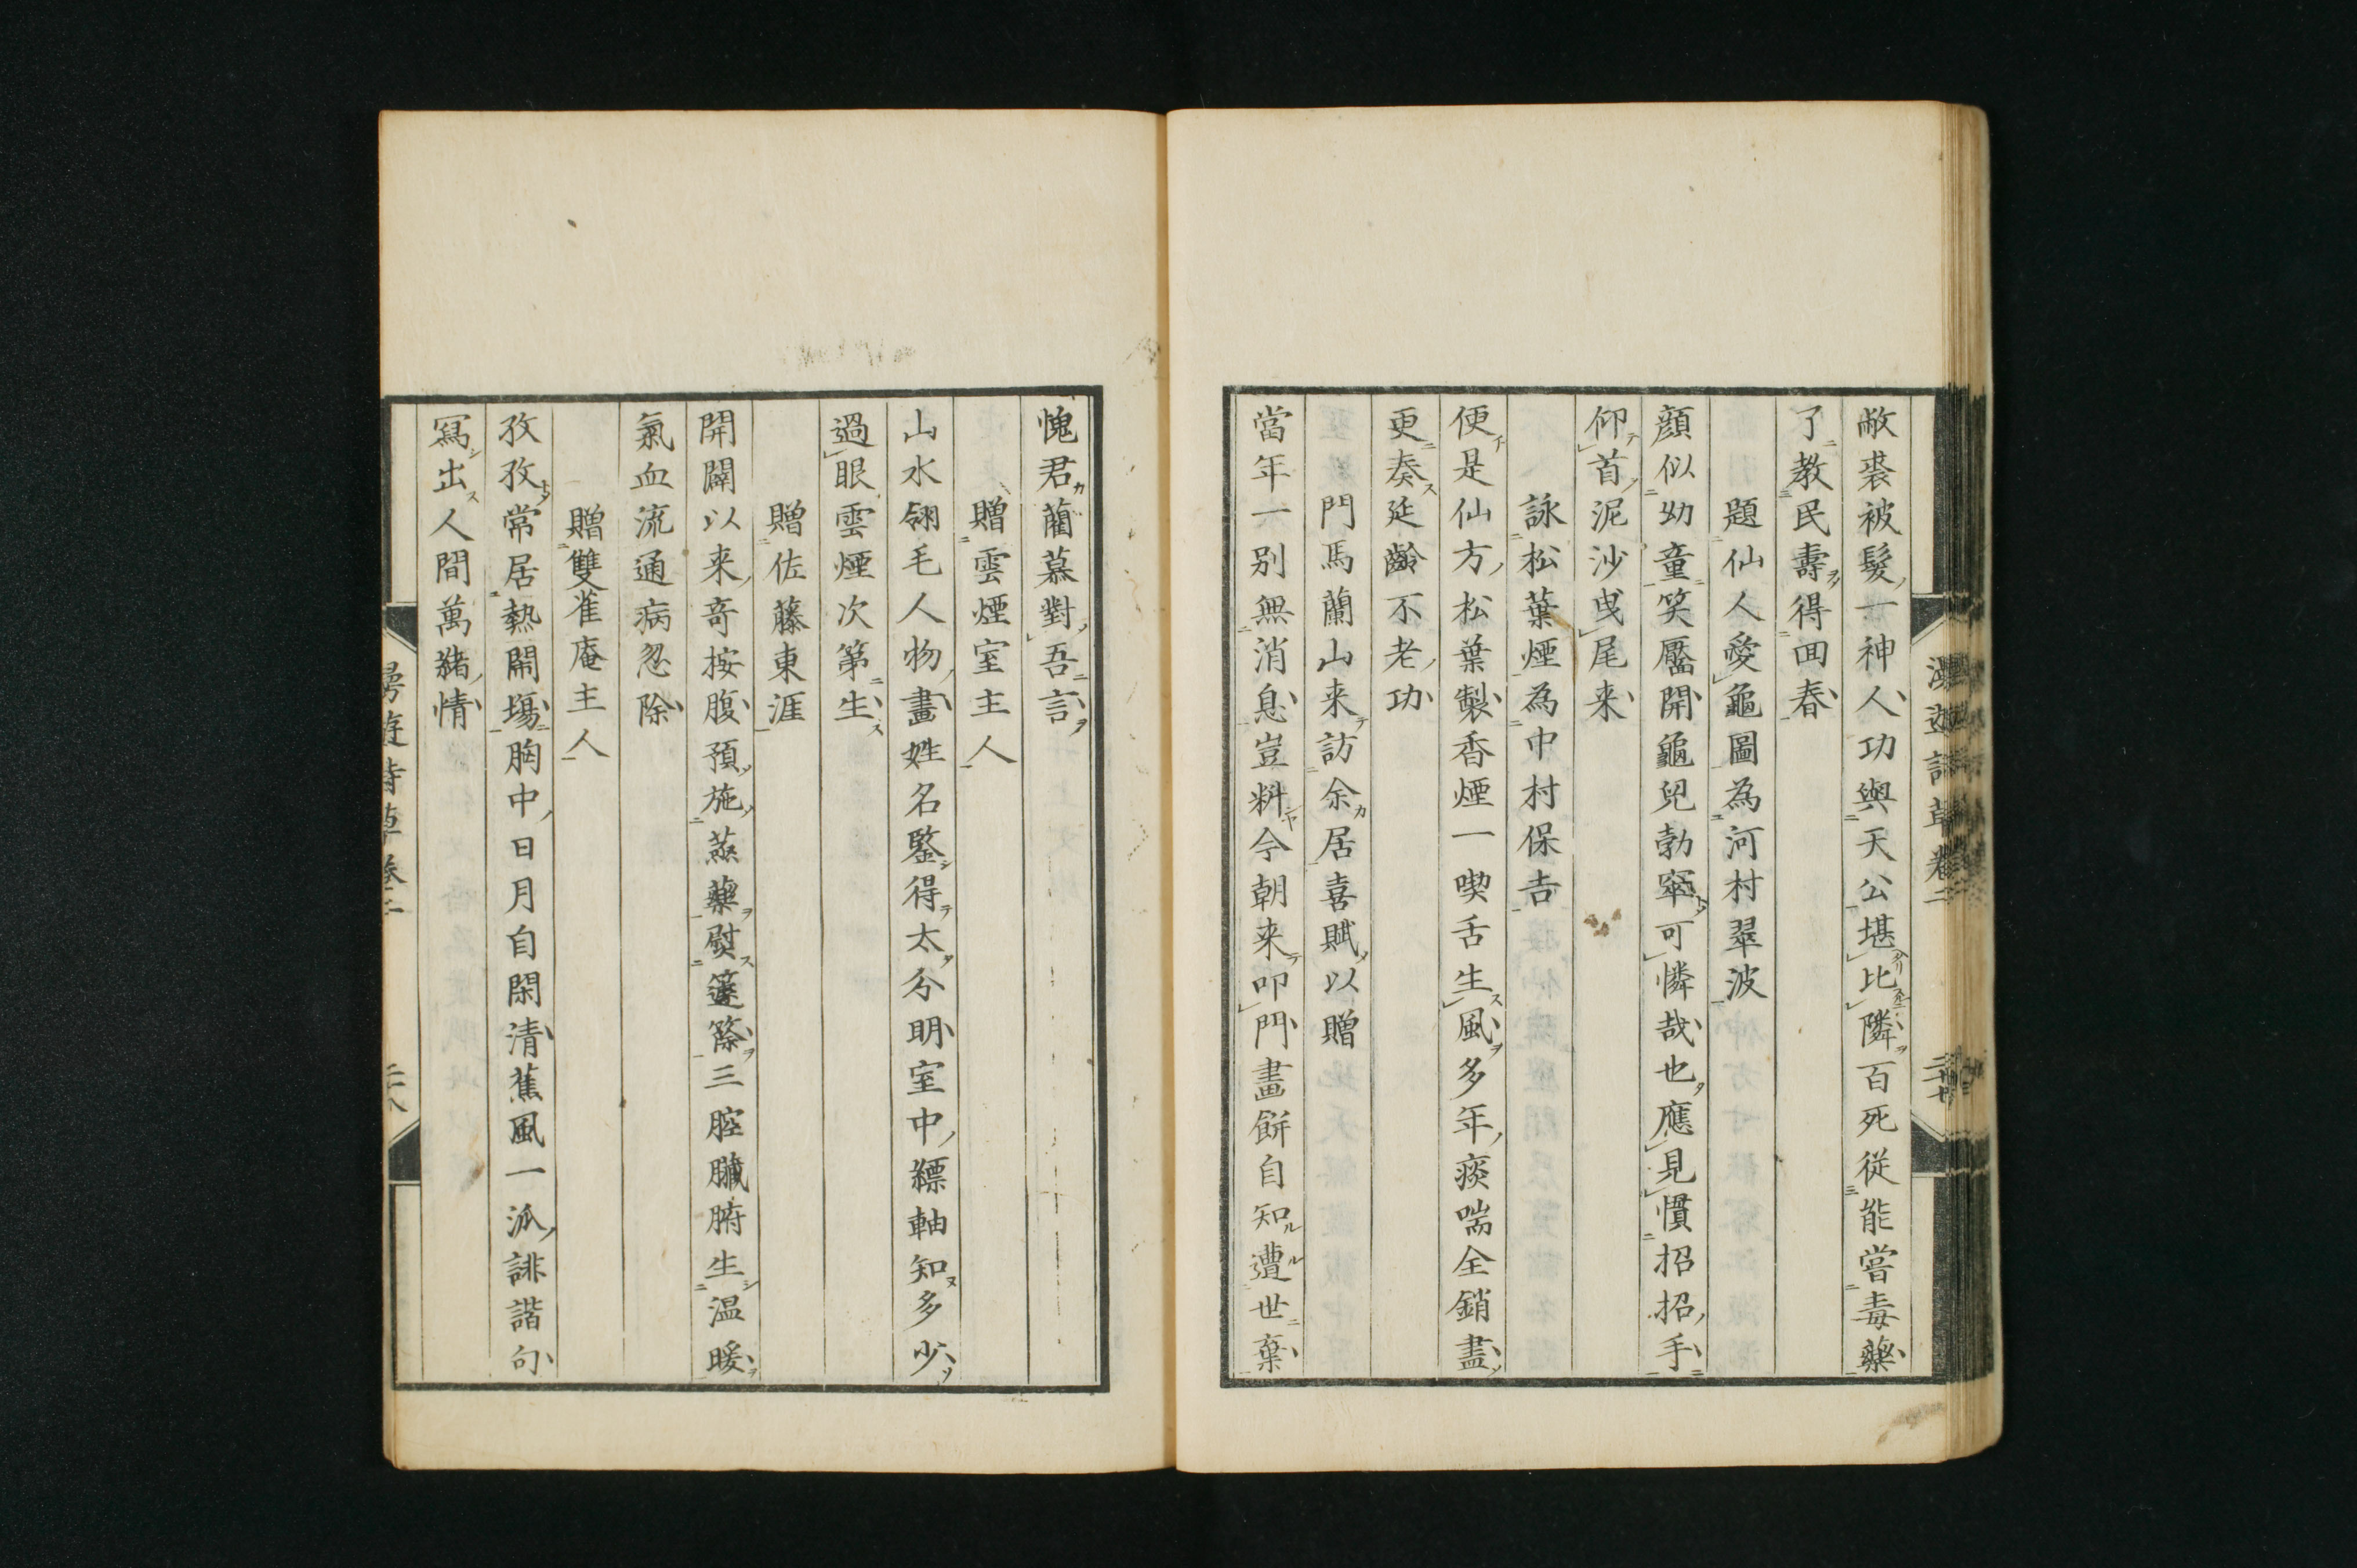 敝裘被髮一神人功與天公堪比隣百死從能嘗毒藥
了教民壽得回春
題仙人愛龜圖為河村翠波
顔似幼童笑靨開龜兒勃窣可憐哉也應見慣招招手
仰首泥沙曳尾来
詠松葉煙為中村保吉
便是仙方松葉製香煙一喫舌生風多年痰喘全銷盡
更奏延齡不老功
門馬蘭山来訪余居喜賦以贈
當年一別無消息豈料今朝来叩門畫餅自知遭世棄
愧君藺慕對吾言
贈雲煙室主人
山水翎毛人物畫姓名鑒得太分明室中縹軸知多少
過眼雲煙次第生
贈佐藤東涯
開闢以来奇按腹預施蒸藥熨籧篨三腔臓腑生温暖
氣血流通病忽除
贈雙雀庵主人
孜孜常居熱閙塲胸中日月自閑清蕉風一派誹諧句
寫出人間萬緒情